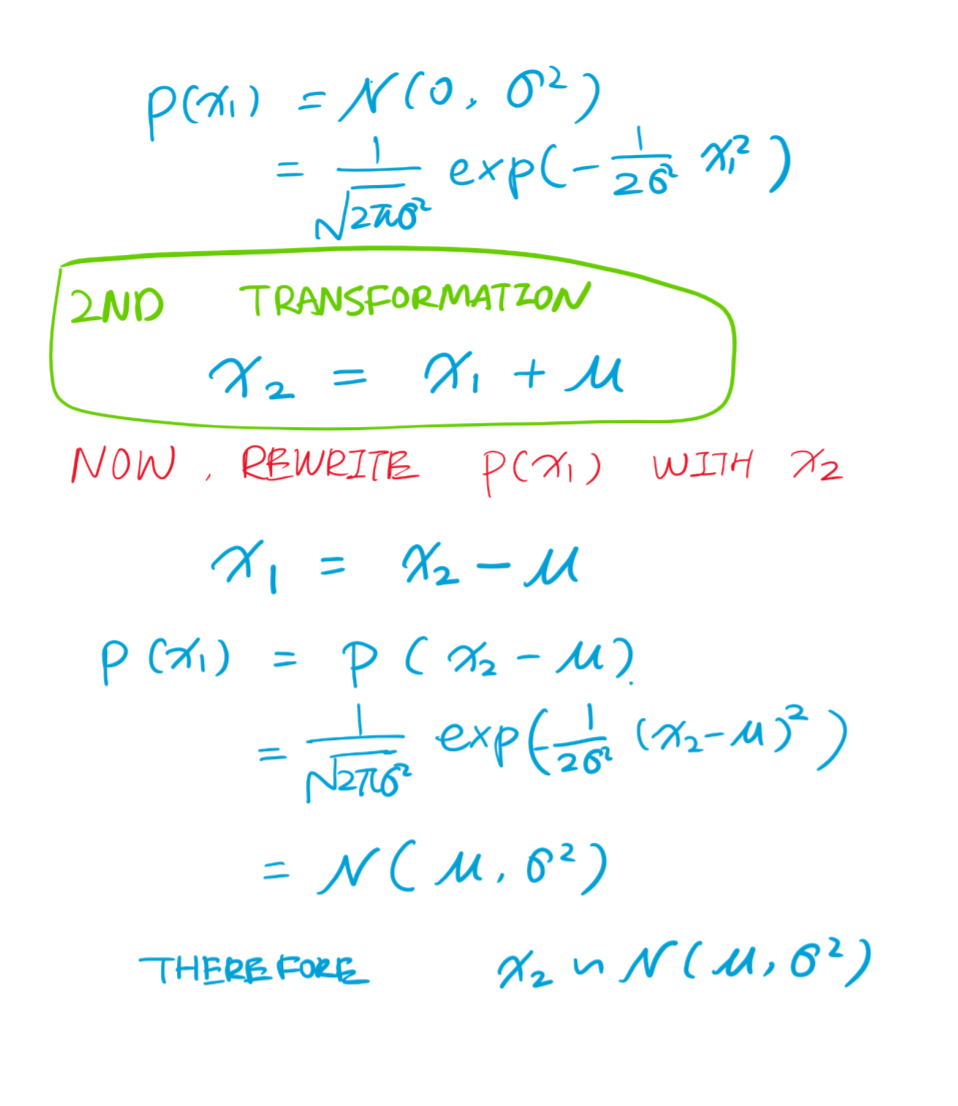 p(x₁) = N(0, σ²)
= 1/√(2πσ²) exp(-1/(2σ²) x₁²)
2ND TRANSFORMATION
x₂ = x₁ + μ
NOW, REWRITE p(x₁) WITH x₂
x₁ = x₂ - μ
p(x₁) = p(x₂ - μ)
= 1/√(2πσ²) exp(-1/(2σ²) (x₂-μ)²)
= N(μ, σ²)
THEREFORE x₂ ~ N(μ, σ²)